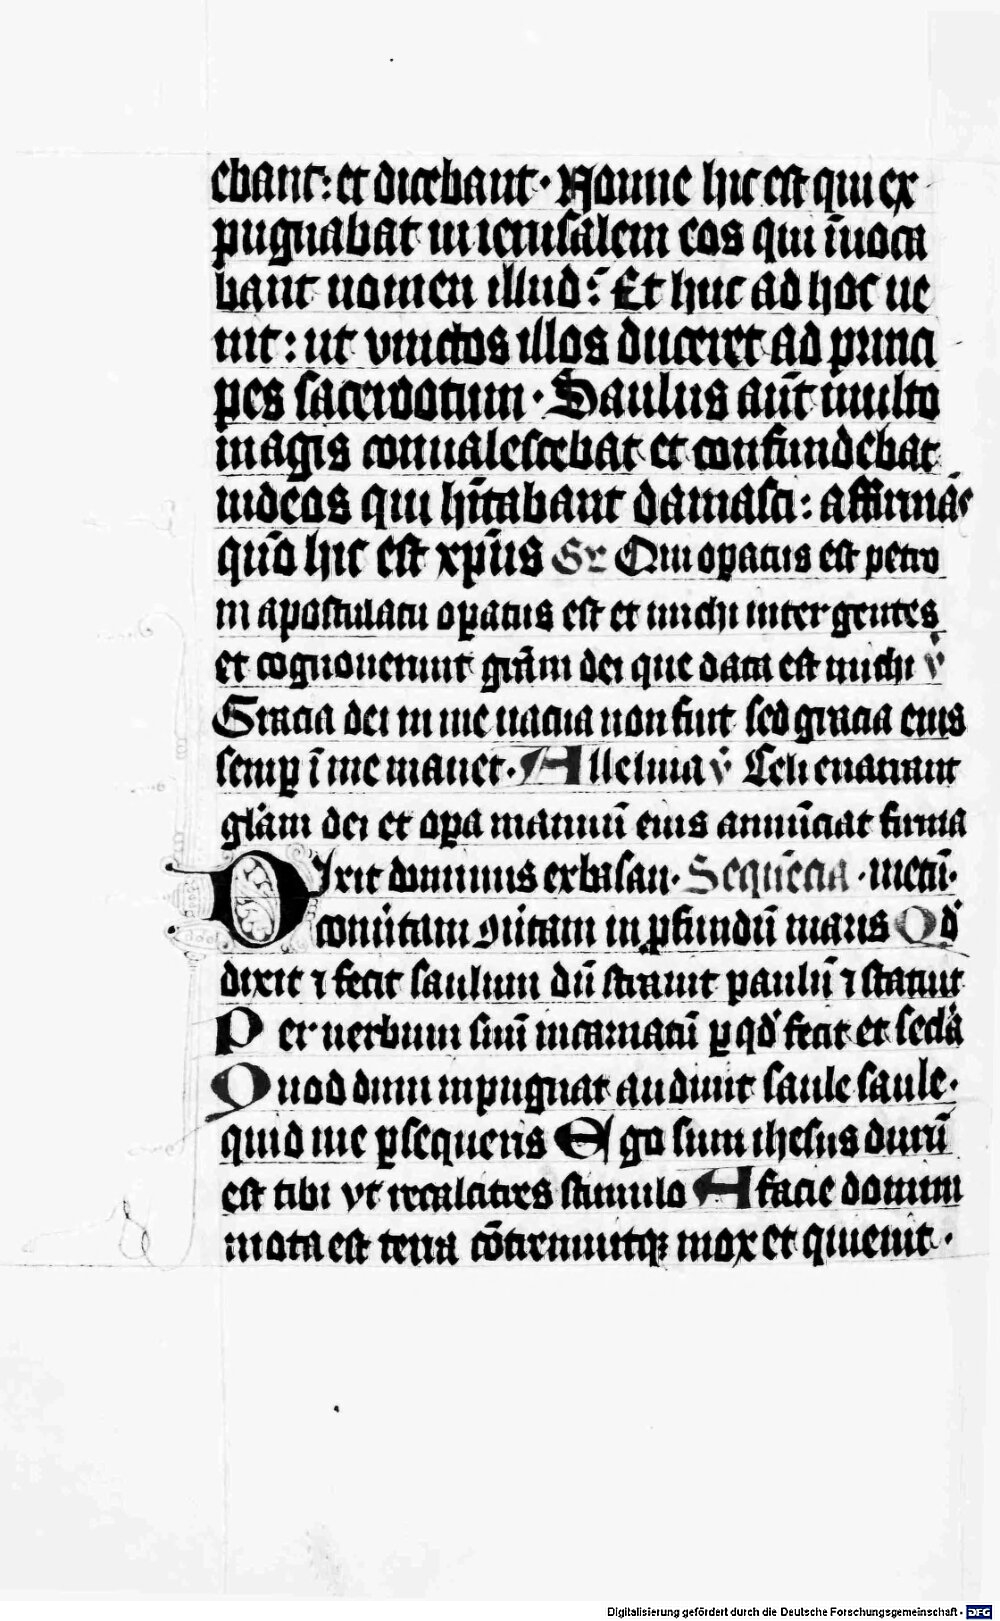 ebant: et dicebant· Nonne hic est qui ex
pugnabat in ierusalem eos qui īuoca
bant nomen illud: Et huc ad hoc ue
nit: ut vinctos illos duceret ad princi
pes sacerdotum· Saulus aūt multo
magis conualescebat et confundebat
iudeos qui hītabant damasci: affirmās
qūo hic est xp̄us Gr Qui op̲atus est petro
in apostulatu op̲atus est et michi inter gentes
et cognouerunt grām dei que data est michi v̄
Gracia dei in me uacua non fuit sed gracia eius
semp̲ ī me manet· Alleluia v̄ Celi enarrant
glām dei et op̲a manuū eius annūciat firma
Dixit dominus ex basan· Sequēcia ·metū·
conūtam 9ūtam in p̲fundū maris Qd̄
dixit ⁊ fecit saulum dū strauit paulū ⁊ statuit
Per uerbum suū incarnatū p̲ qd̄ fecit et secl̄a
Quod dum inpugnat audiuit saule saule·
quid me p̲sequeris Ego sum ihesus durū
est tibi vt recalcitres stimulo A facie domini
mota est terra cōtremuitqꝫ mox et quieuit·
Digitalisierung gefördert durch die Deutsche Forschungsgemeinschaft - DFG